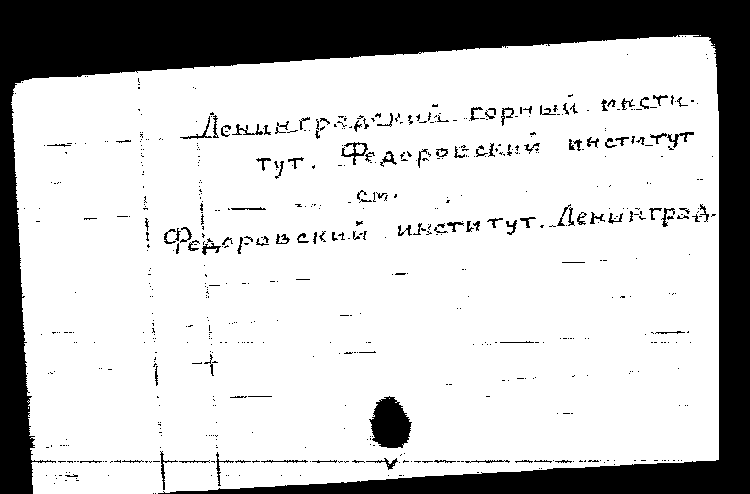 Ленинградский горный инсти-
тут. Федоровский институт
см.
Федоровский институт. Ленинград.